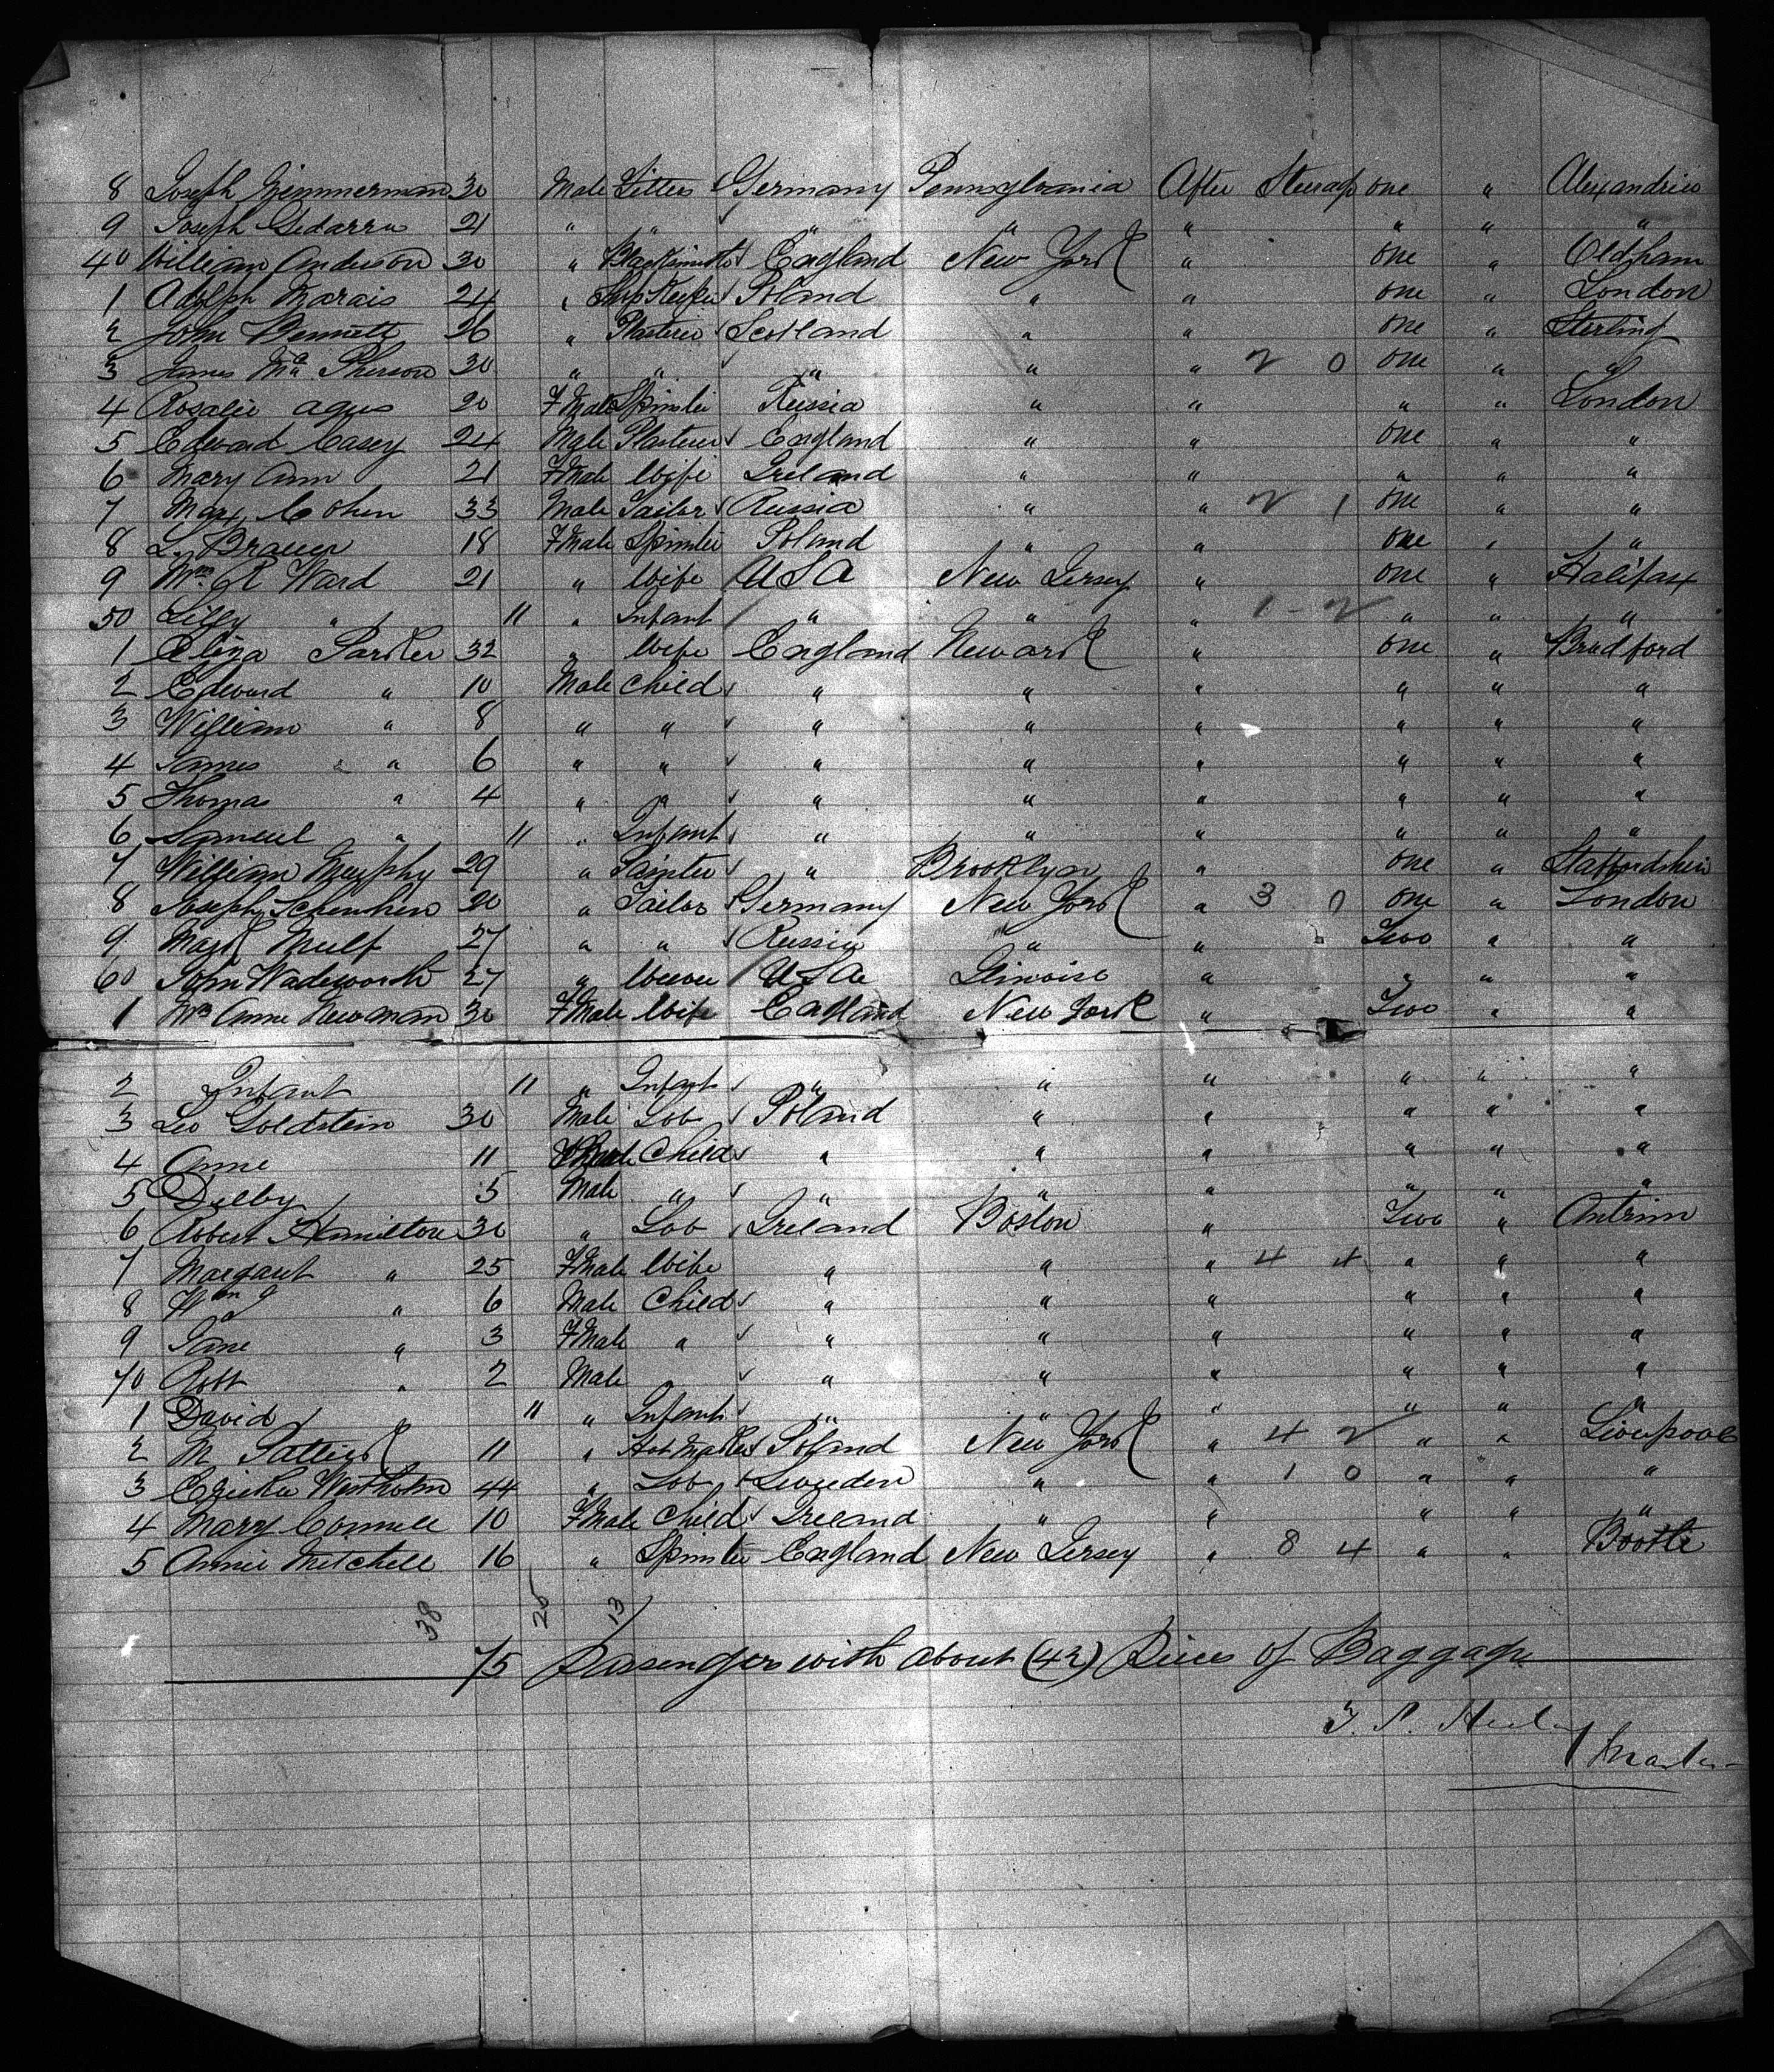 8 Joseph Zimmerman 30 Male Fitter Germany Pennsylvania After Steerage one " Alexandria
9 Joseph 21 " " " " " " " "
40 William Anderson 30 " Blacksmith England New York " one " Oldham
1 Adolph Marais 24 " Shop Keeper Poland " " one " London
2 John Bennett 26 " Plasterer Scotland " " one " Sterling
3 James Mc Pherson 30 " " " " " 2 0 one " "
4 Rosalie 20 F Male Spinster Russia " " " " London
5 Edward Casey 24 Male Plasterer England " " one " "
6 Mary Ann 21 F Male Wife Ireland " " " " "
7 Max Cohen 33 Male Tailor Russia " " 2 1 one " "
8 L. Brauer 18 F Male Spinster Poland " " one " "
9 Mrs R Ward 21 " Wife USA New Jersey " one " Halifax
50 Lilly " 11 " Infant " " " 1 - 2 " " "
1 Eliza Parker 32 " Wife England Newark " one " Bradford
2 Edward " 10 Male Child " " " " " "
3 William " 8 " " " " " " " "
4 James " 6 " " " " " " " "
5 Thomas " 4 " " " " " " " "
6 Samuel " 11 " Infant " " " " " "
7 William Murphy 29 " Painter " Brooklyn " one " Staffordshire
8 Joseph 20 " Tailor Germany New York " 3 0 one " London
9 27 " " Russia " " Two " "
60 John Wadsworth 27 " Weever USA Ilinoise " " " "
1 Mrs Anne Newman 30 F Male Wife England New York " Two " "
2 Infant 11 " Infant " " " " " "
3 Leo Goldstein 30 Male Lab Poland " " " " "
4 Anne 11 F Male Child " " " " " "
5 5 Male " " " " " " "
6 Robert Hamilton 30 " Lab Ireland Boston " Two " Antrim
7 Margaret " 25 F Male Wife " " " 4 4 " " "
8 Wm J " 6 Male Child " " " " " "
9 Jane " 3 F Male " " " " " " "
70 Robt " 2 Male " " " " " "
1 David 11 " Infant " " " " " "
2 M 11 " Poland New York " 4 2 " " Liverpool
3 Westholm 44 " Lab Sweeden " " 1 0 " " "
4 Mary 10 F Male Child Ireland " " " " "
5 Annie Mitchell 16 " Spinster England New Jersey " 8 4 " " Bootle
38 25 13
75 Passengers with about (42) Pieces of Baggage
Master